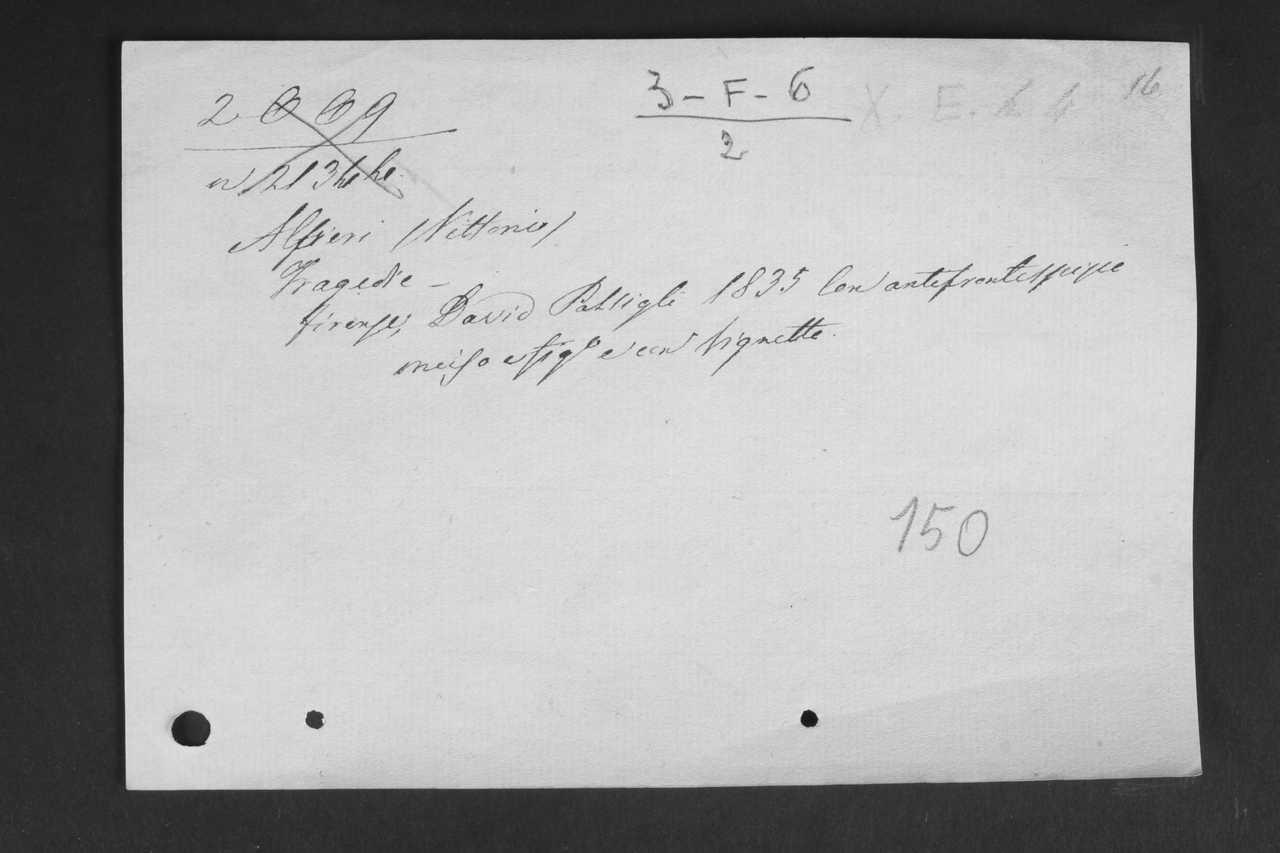 2009
3-F-6
2
X. E.
16
Alfieri (Vittorio)
Tragedie -
firenze, David Passigli 1835 Con antefrontespizio
inciso e fig.e e con vignette.
150